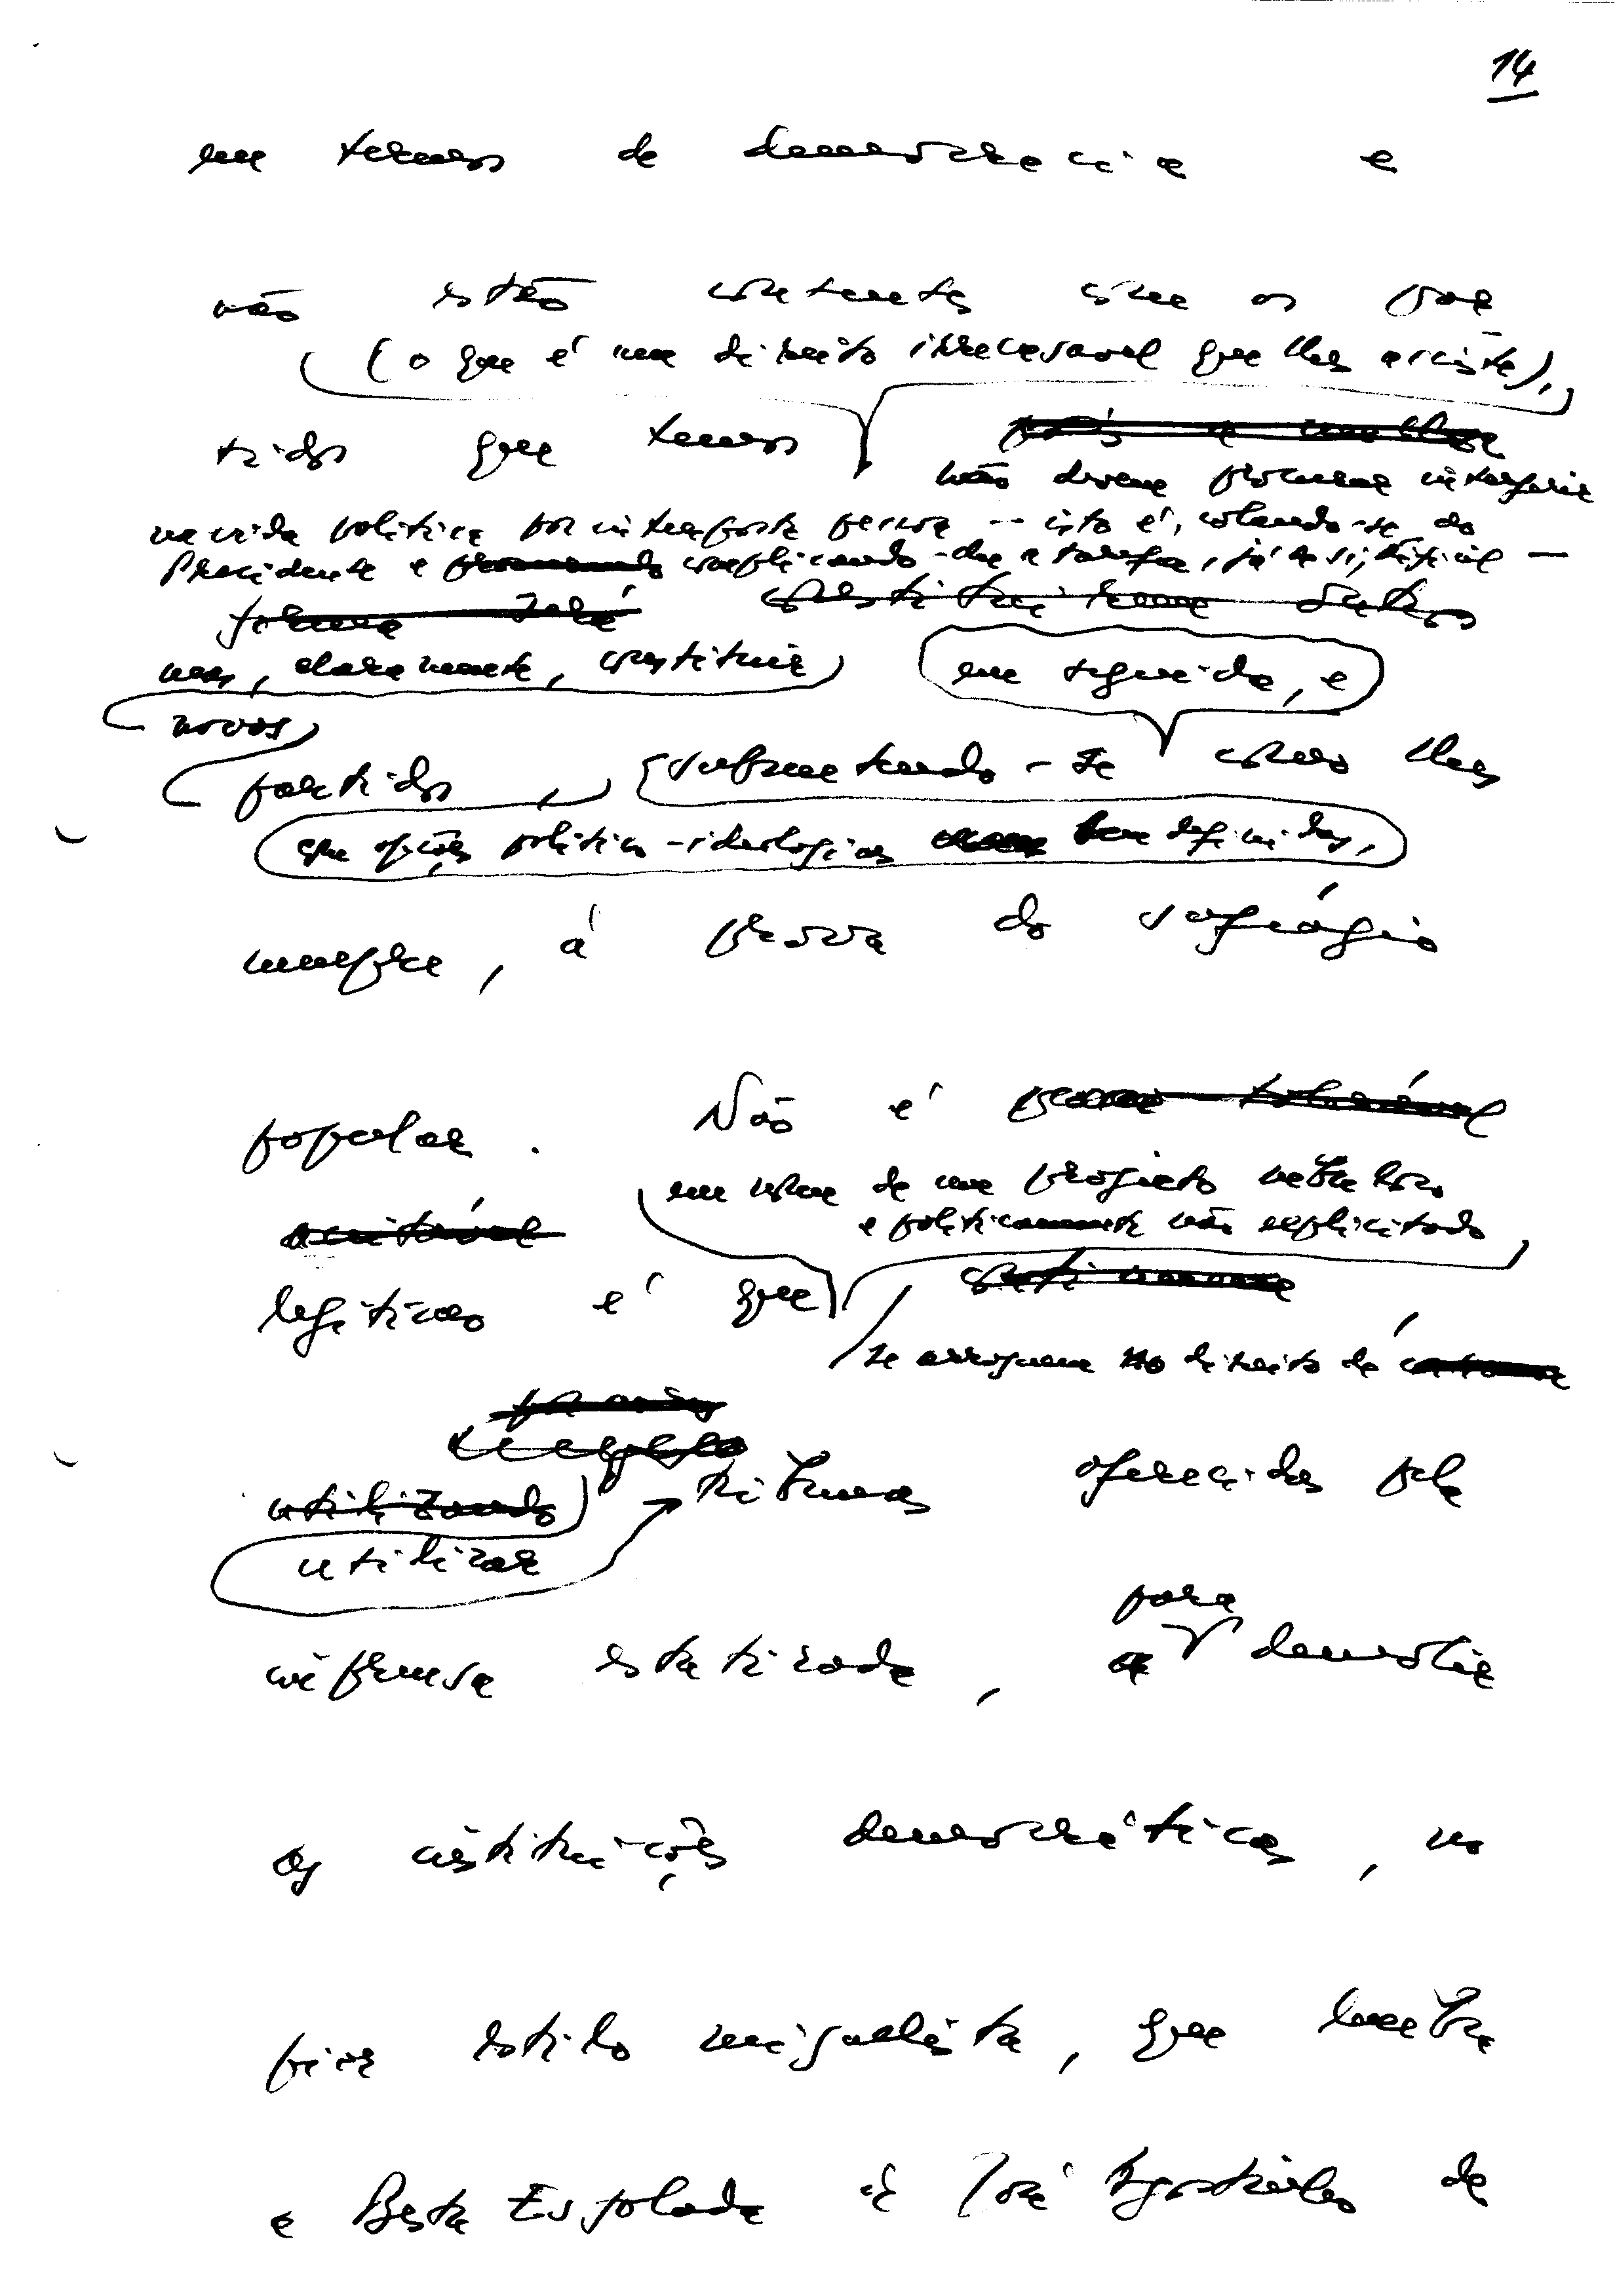 14
em termos de democracia e
não estão contentes com os par
(o que é um direito irrecusável que lhes assiste),
tidos que temos
não devem procurar interferir
na vida política por interposta pessoa — isto é, colando-se ao
Presidente e complicando-lhe a tarefa, já de si, difícil —
mas, claramente, constituir
em seguida, e
novos
partidos, submetendo-se como lhes
com opções político-ideológicas bem definidas,
cumpre, à prova do sufrágio
popular. Não é
em nome de um projecto nebuloso
e politicamente não explicitado
legítimo é que
se arroguem no direito de
utilizar
tribunas oferecidas pela
para
imprensa estatizada, demolir
as instituições democráticas, no
pior estilo miguelista, que lembra
a Besta Esfolada de José Agostinho de